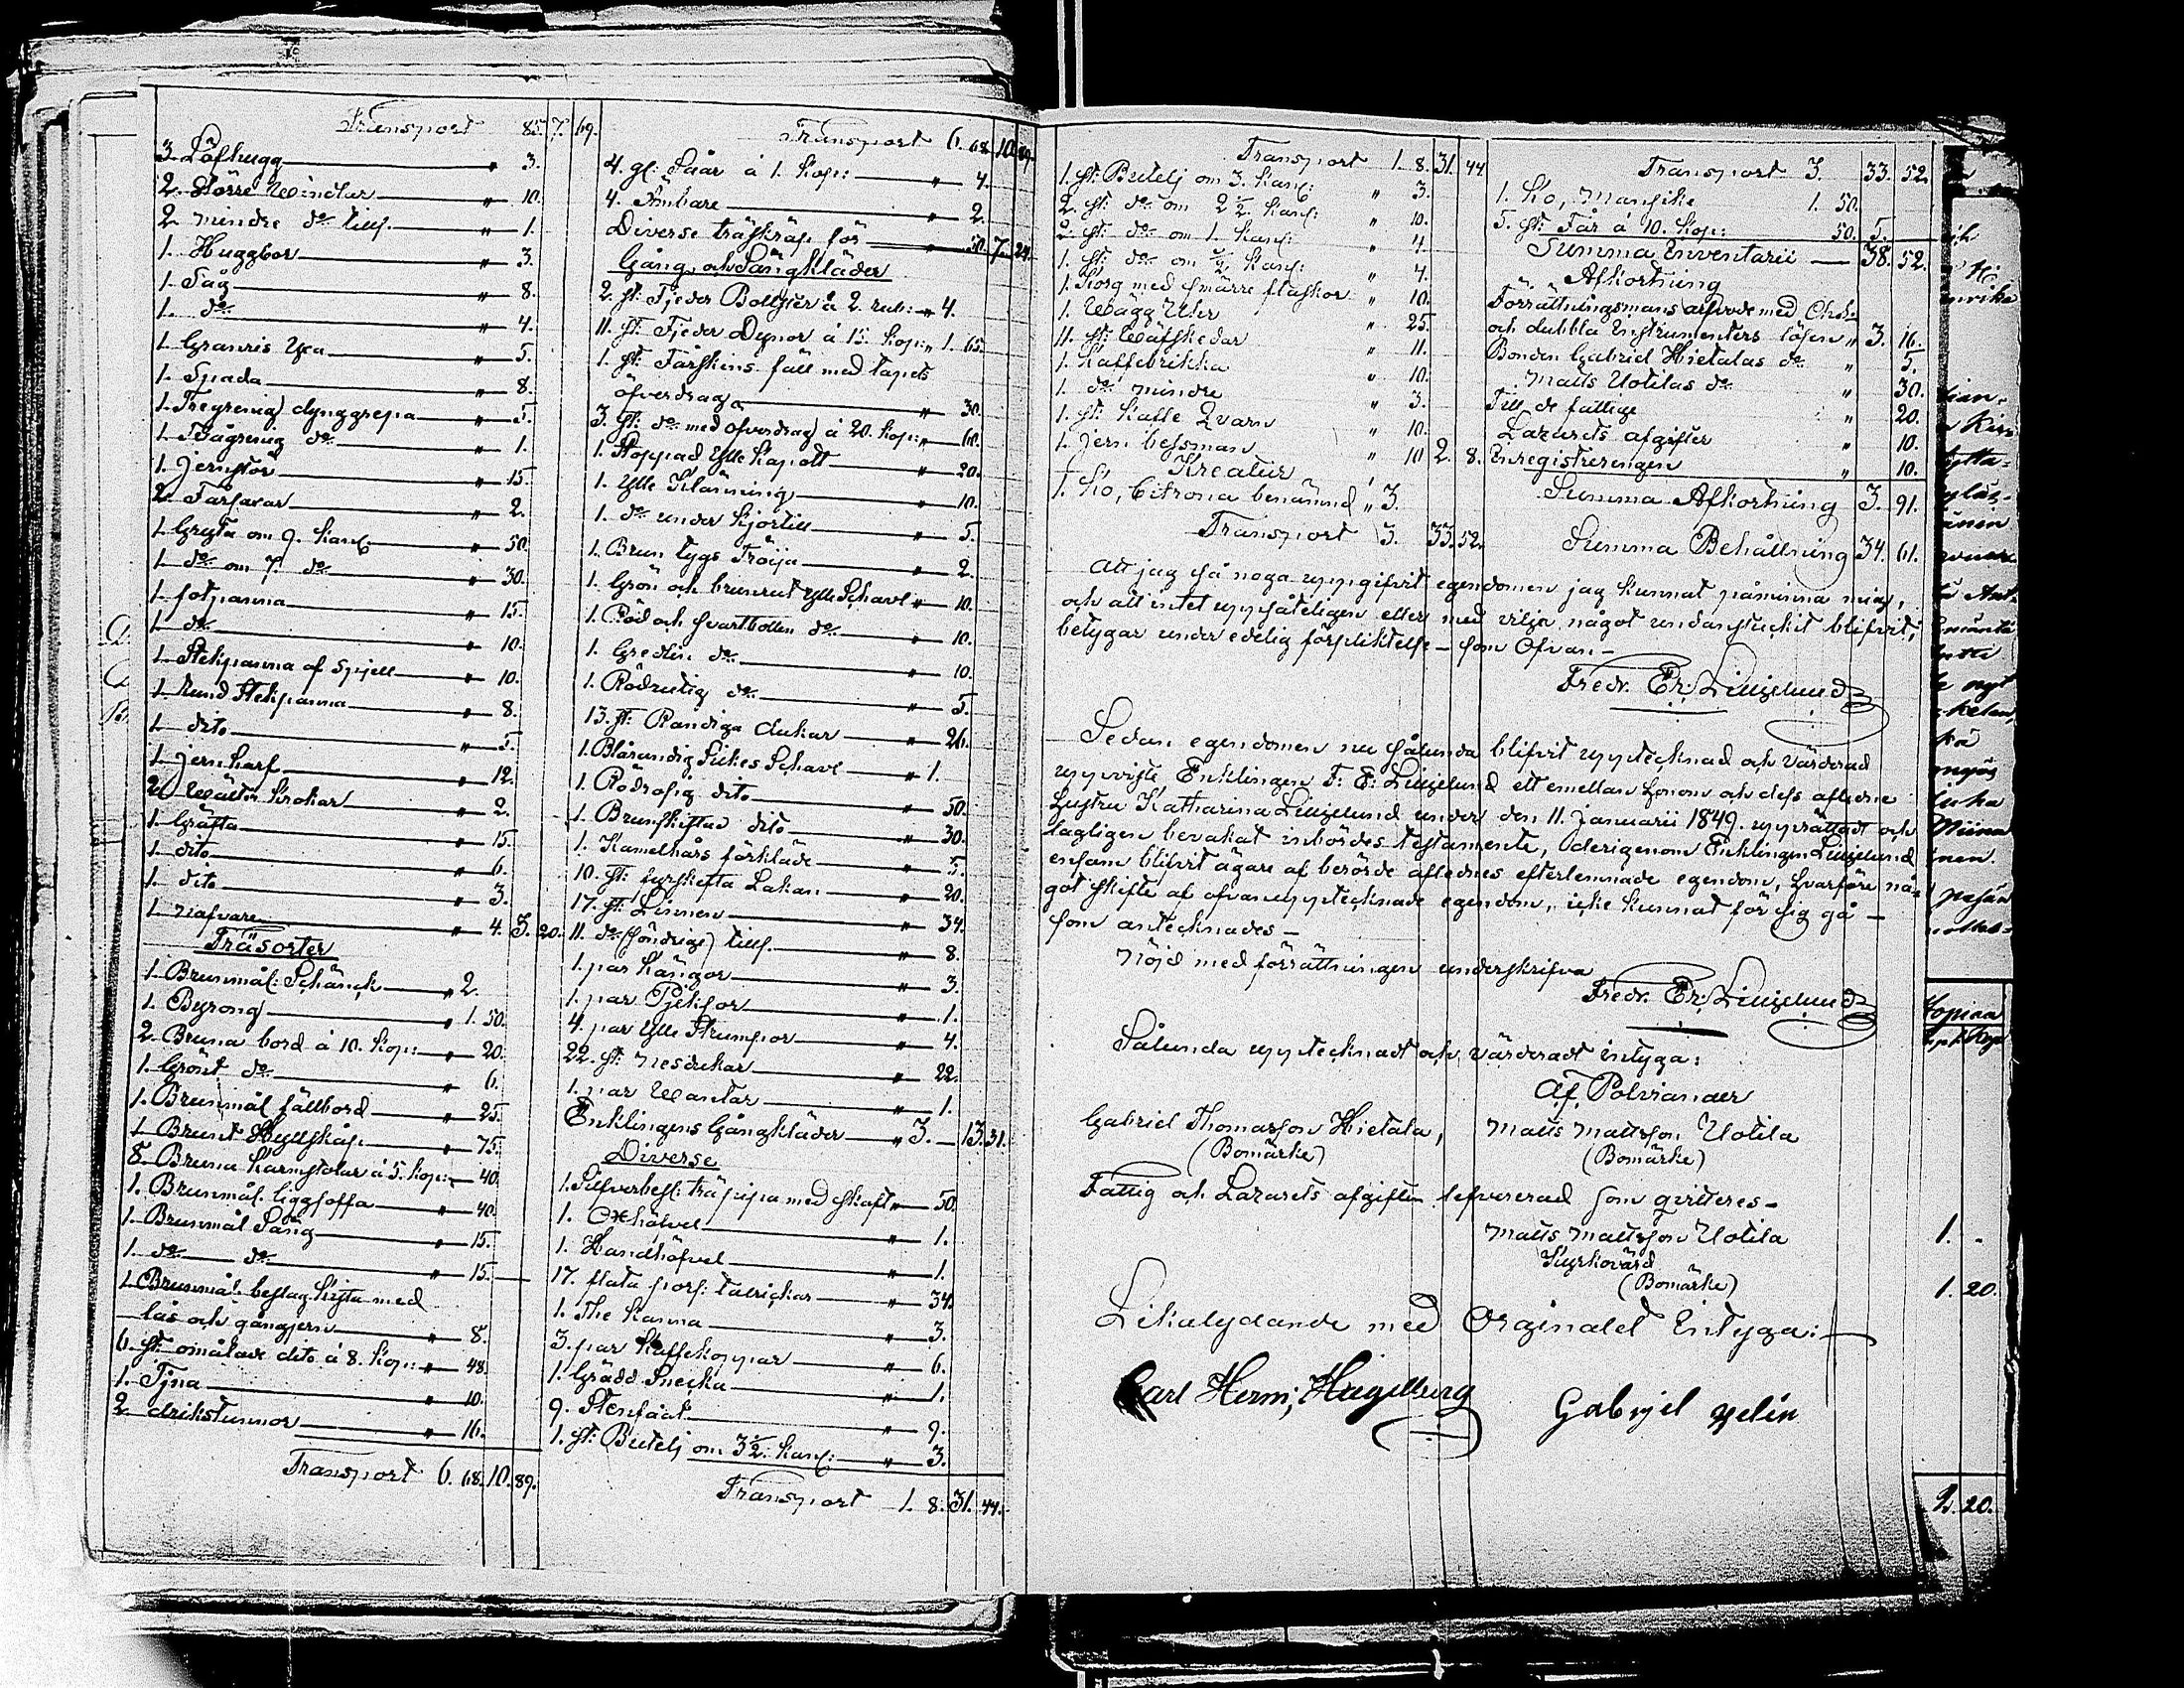 Transport 85. 7. 69.
3. Löfhugg " 3.
2. större Windlar " 10.
2. mindre d:o tills. " 1.
1. Huggbor " 3.
1. Såg " 8.
1. d:o " 4.
1. Granris Yxa " 5.
1. Spada " 8.
1. Tregrenig dynggrepa " 5.
1. Tvågrenig d:o " 1.
1. jernstör " 15.
2. Fårsaxar " 2.
1. Gryta om 9. Kans. " 50.
1. d:o om 7. d:o " 30.
1. fotpanna " 15.
1. d:o " 10.
1. Stekpanna af Spjell " 10.
1. rund Stekpanna " 8.
1. dito " 5.
1. jern harf " 12.
2. Wälter Krokar " 2.
1. Gräfta " 15.
1. dito " 6.
1. dito " 3.
1. nafvare " 4. 3. 20.
Träsorter
1. Brunmål: Schänck " 2.
1. Byrong " 1. 50.
2. Bruna bord á 10. Kop: " 20.
1. Grönt d:o " 6.
1. Brunmål fällbord " 25.
1. Brunt Hyllskåp " 75.
8. Bruna Karmstolar á 5. Kop: " 40.
1. Brunmål. liggsoffa " 40.
1. Brunmål Säng " 15.
1. d:o d:o " 15.
1. Brunmål. beslag Kista med
lås och gångjern " 8.
6. st: omålade dito á 8. Kop: " 48.
1. Tjna " 10.
2. drikstunnor " 16.
Transport 6. 68. 10. 89.
Transport 6. 68. 10. 89.
4. gl: Såar á 1. Kop: " 4.
4. Ämbare " 2.
Diverse träskräp för " 50. 7. 24.
Gång och Sängkläder
2. st: Fjeder Bolster á 2. rub: " 4.
11. st: Fjeder Dynor á 15. Kop: " 1. 65.
1. st: Fårskins fäll med tapets
öfverdrag " 30.
3. st: d:o med öfverdrag á 20. Kop: " 60.
1. Stoppad Ylle Kapott " 20.
1. Ylle Klänning " 10.
1. d:o under Kjortill " 5.
1. Brun tygs Tröija " 2.
1. Grön och brunrut Ylle Schavl " 10.
1. Röd och svartbotten d:o " 10.
1. Gredlin d:o " 10.
1. Rödrutig d:o " 5.
13. st: Randiga dukar " 26.
1. Blårandig Silkes Schavl " 1.
1. Rödrosig dito " 50.
1. Brunskiftad dito " 30.
1. Kamelhårs förkläde " 5.
10. st: fyrskefta Lakan " 20.
17. st: Linnen " 34.
11. d:o (söndrige) tills. " 8.
1. par Kängor " 3.
1. par Pjeksor " 1.
4. par Ylle Strumpor " 4.
22. st: nesdukar " 22.
1. par Wantar " 1.
Enklingens Gångkläder " 3. 13. 31.
Diverse
1. Silfverbesl: träpipa med skaft " 50.
1. Oxhöfvel " 1.
1. Handhöfvel " 1.
17. flata pors: talrickar " 34.
1. The Kanna " 3.
3. par Kaffekoppar " 6.
1. Grädd Snecka " 1.
9. Stenfaat " 9.
1. st: Butelj om 3½. Kans: " 3.
Transport 1. 8. 31. 44.
Transport 1. 8. 31. 44.
1. st: Butelj om 3. Kans: " 3.
2. st: d:o om 2½. Kans: " 10.
2. st: d:o om 1. Kans: " 4.
1. st: d:o om ½. Kans: " 4.
1. Korg med smärre flaskor " 10.
1. Wägg Uhr " 25.
11. st: Wäfskedar " 11.
1. Kaffebrikka " 10.
1. d:o mindre " 3.
1. st: Kaffe Qvarn " 10.
1. jern bessman " 10 2. 8.
Kreatur
1. Ko, Citrona benämnd " 3.
Transport 3. 33. 52.
Transport 3. 33. 52.
1. Ko, Mansike 1. 50.
5. st: Får á 10. Kop: 50. 5.
Summa Inventarii 38. 52.
Afkortning
Förrättningsmans arfvode med Chsk
och dubbla Instrumenters lösen " 3. 16.
Bonden Gabriel Hietalas d:o " 5.
Matts Uotilas d:o " 30.
Till de fattige " 20.
Lazarets afgifter " 10.
Enregistreringen " 10.
Summa Afkortning 3. 91.
Summa Behållning 34. 61.
Att jag så noga uppgifvit egendomen jag kunnat påminna mig,
och att intet uppsåteligen eller med vilja något undanstuckit blifvit,
betygar under edelig förpliktelse som Ofvan.
Fredr. Er: Liljelund
Sedan egendomen nu sålunda blifvit upptecknad och värderad
uppviste Enklingen F: E: Liljelund ett emellan honom och dess aflidne
hustru Katharina Liljelund under den 11. Januarii 1849. upprättadt och
lagligen bevakat inbördes testamente, derigenom Enklingen Liljelund
ensam blifvit ägare af berörde aflednes efterlemnade egendom, hvarföre nå-
got skifte af ofvanupptecknade egendom, icke kunnat för sig gå
som antecknades
Nöjd med förrättningen underskrifva
Fredr. Er: Liljelund
Sålunda upptecknadt och värderadt intyga:
Af. Polviander
Gabriel Thomasson Hietala, Matts Mattsson Uotila
(Bomärke) (Bomärke)
Fattig och Lazarets afgiften lefvererad som qvitteres
Matts Mattsson Uotila
Kyrkovärd
(Bomärke)
Likalydande med Orginalet Intyga:
Carl Herm; Hagelberg Gabrjel Yelin
1. -
1. 20.
2. 20.